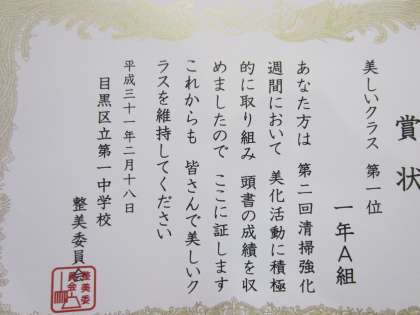 賞状
美しいクラス 第一位
一年A組
あなた方は 第二回清掃強化
週間において 美化活動に積極
的に取り組み 頭書の成績を収
めましたので ここに証します
これからも 皆さんで美しいク
ラスを維持してください
平成三十一年二月十八日
目黒区立第一中学校
整美委員会
整美委員会